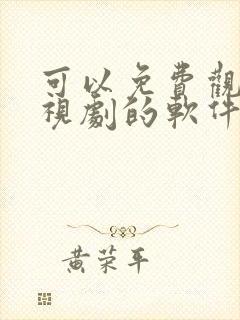 可以免費觀
視劇的軟件
黃荣平